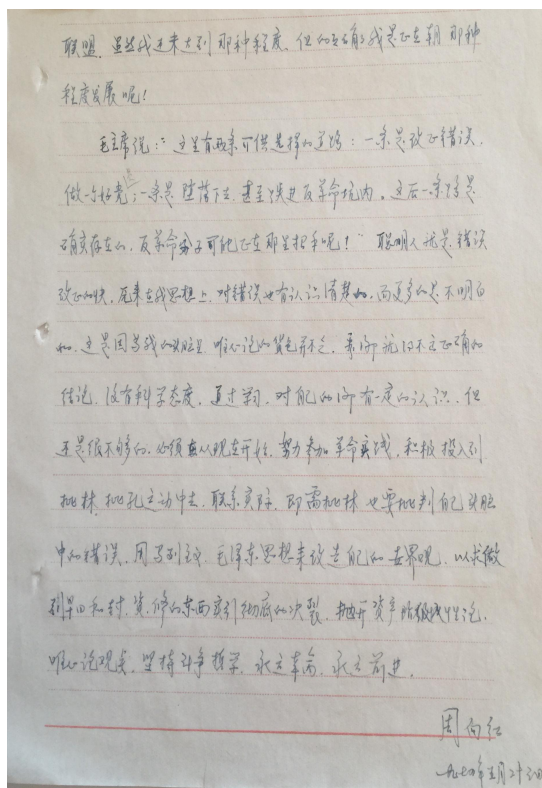 联盟，虽然我还未达到那种程度，但的确我是正在朝那种
程度发展呢！
毛主席说："这里有两条可供选择的道路：一条是改正错误，
做一个好党；一条是堕落下去，甚至跌进反革命坑内。这后一条路是
确实存在的，反革命分子可能正在那里招手呢！" 聪明人就是错误
改正的快，原来在我思想上，对错误也有认识清楚的，而更多的是不明白
的，这是因为我的头脑里唯心论的货色并不乏，事物就得不出正确的
结论，没有科学态度，通过学习，对自己的有一定的认识，但
还是很不够的，必须从现在开始，努力参加革命实践，积极投入到
批林批孔运动中去，联系实际，即需批林也要批判自己头脑
中的错误，用马列主义、毛泽东思想来改造自己的世界观，以求做
到早日和封、资、修的东西实行彻底的决裂，抛开资产阶级性论，
唯心论观点，坚持斗争哲学，永远革命，永远前进。
周向红
一九七 年五月廿 日